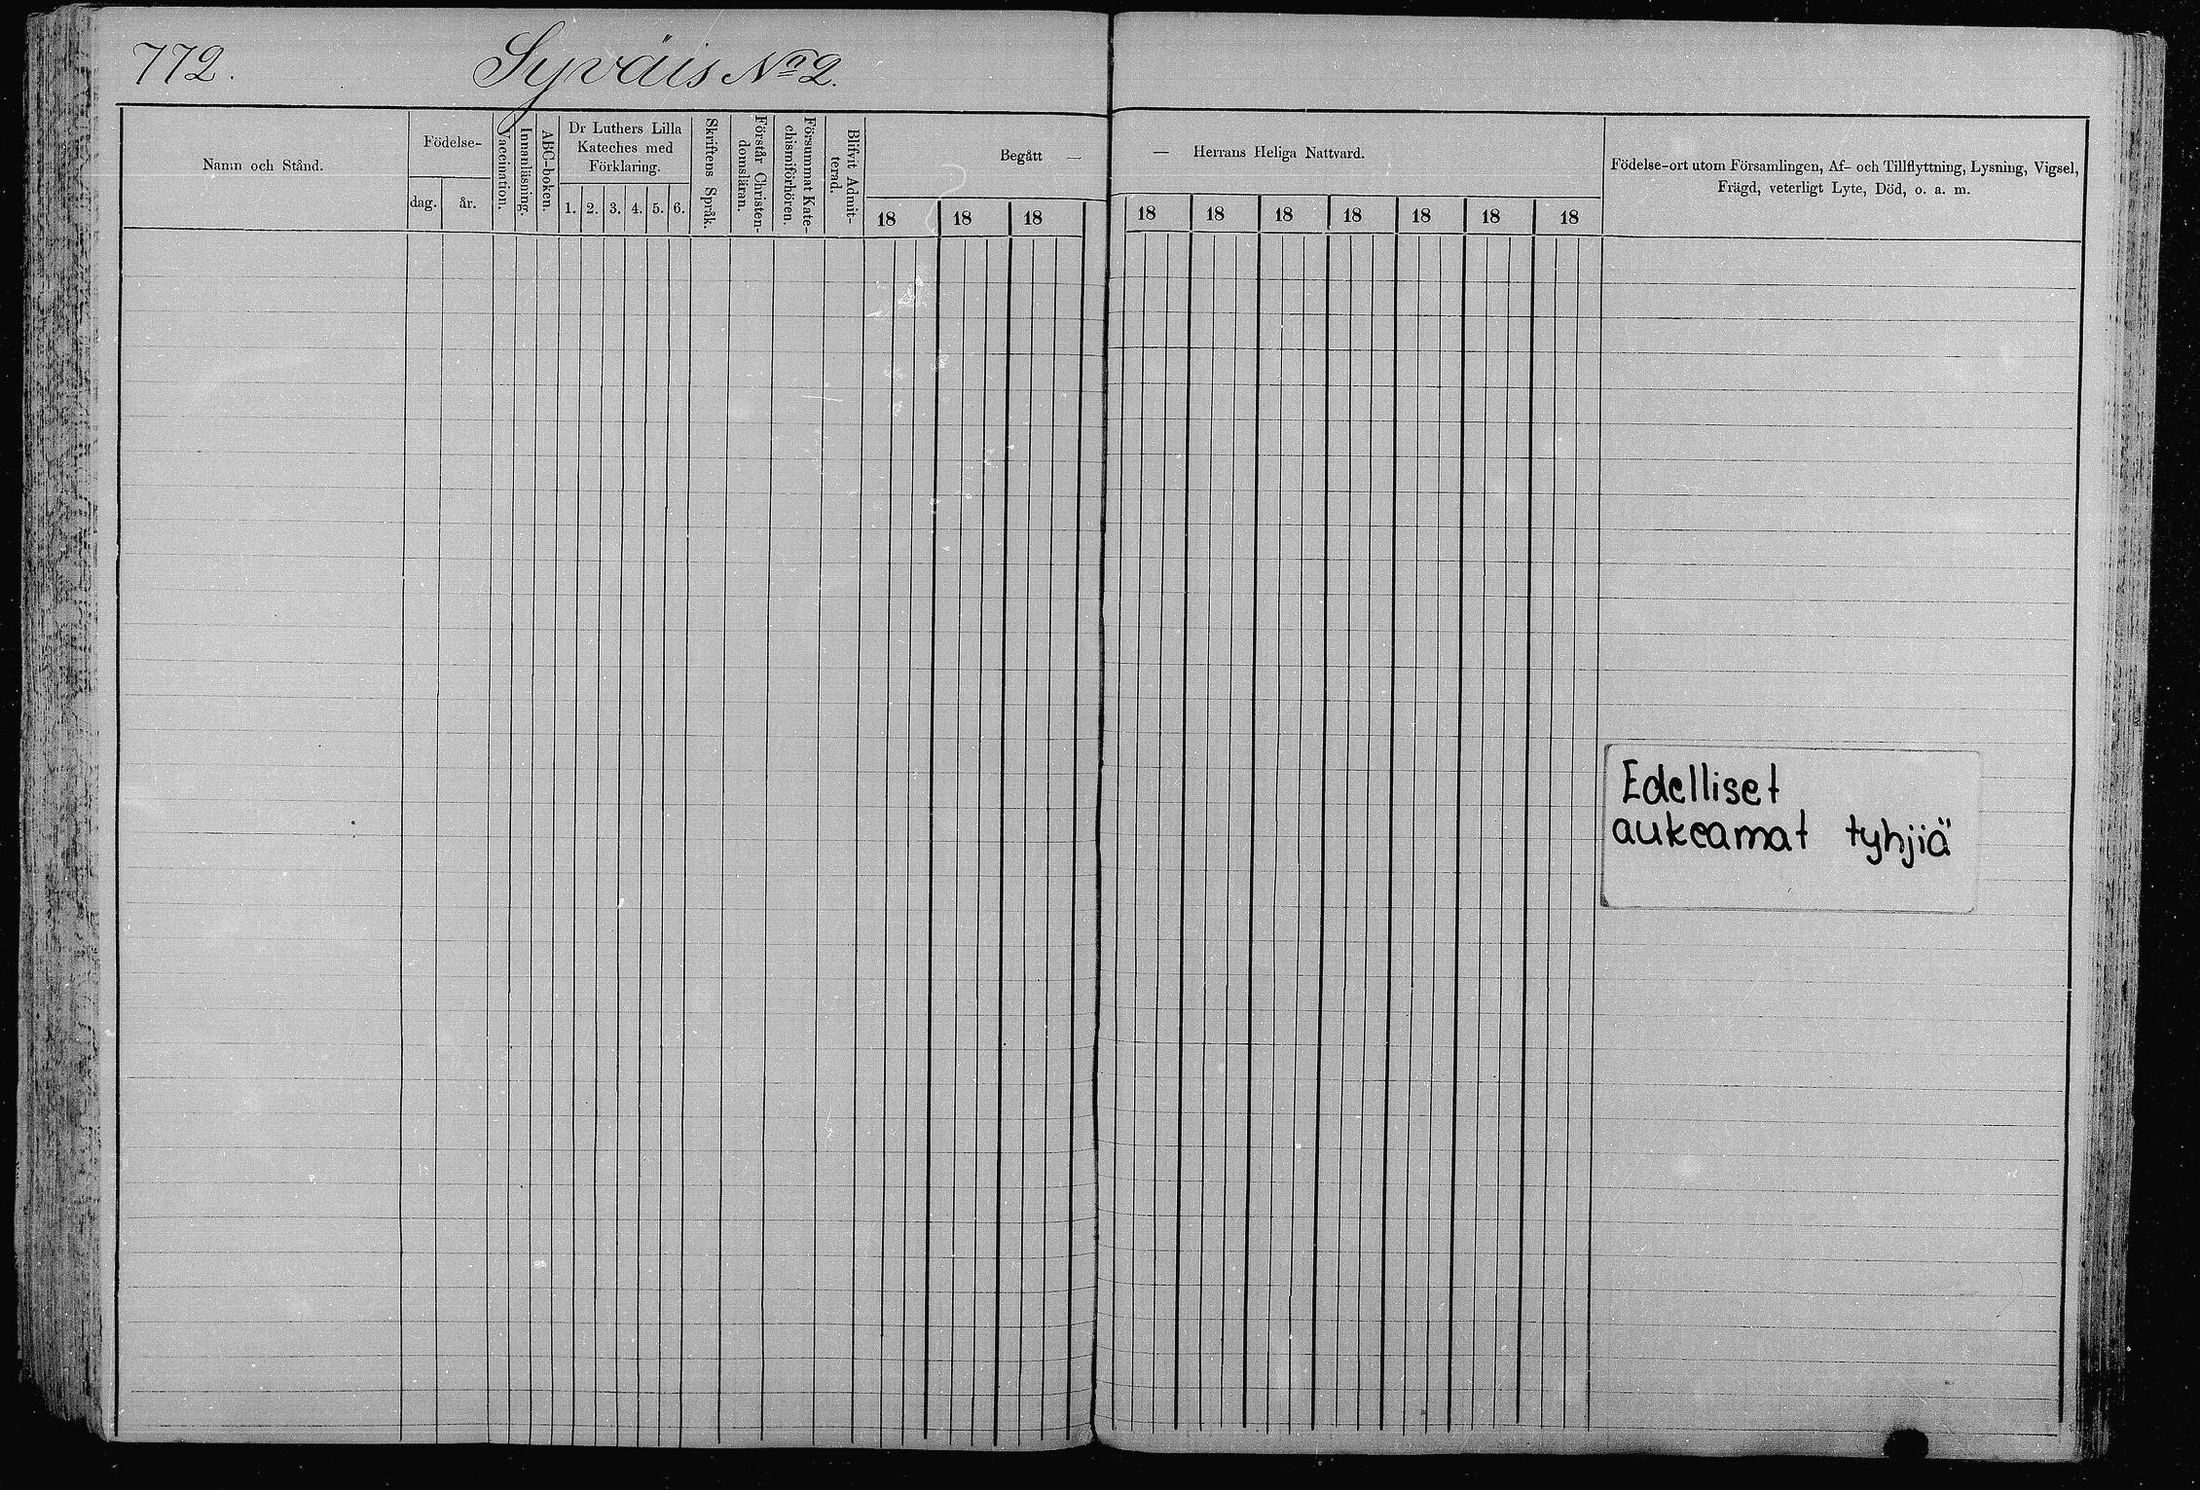 772. Syväis No 2.
Namn och Stånd.
Födelse-
dag. år.
Vaccination.
Innanläsning.
ABC-boken.
Dr Luthers Lilla
Kateches med
Förklaring.
1. 2. 3. 4. 5. 6.
Skriftens Språk.
Förstår Christen-
domsläran.
Försummat Kate-
chismiförhören.
Blifvit Admit-
terad.
Begått —
18 18 18
— Herrans Heliga Nattvard.
18 18 18 18 18 18 18
Födelse-ort utom Församlingen, Af- och Tillflyttning, Lysning, Vigsel,
Frägd, veterligt Lyte, Död, o. a. m.
Edelliset
aukeamat tyhjiä